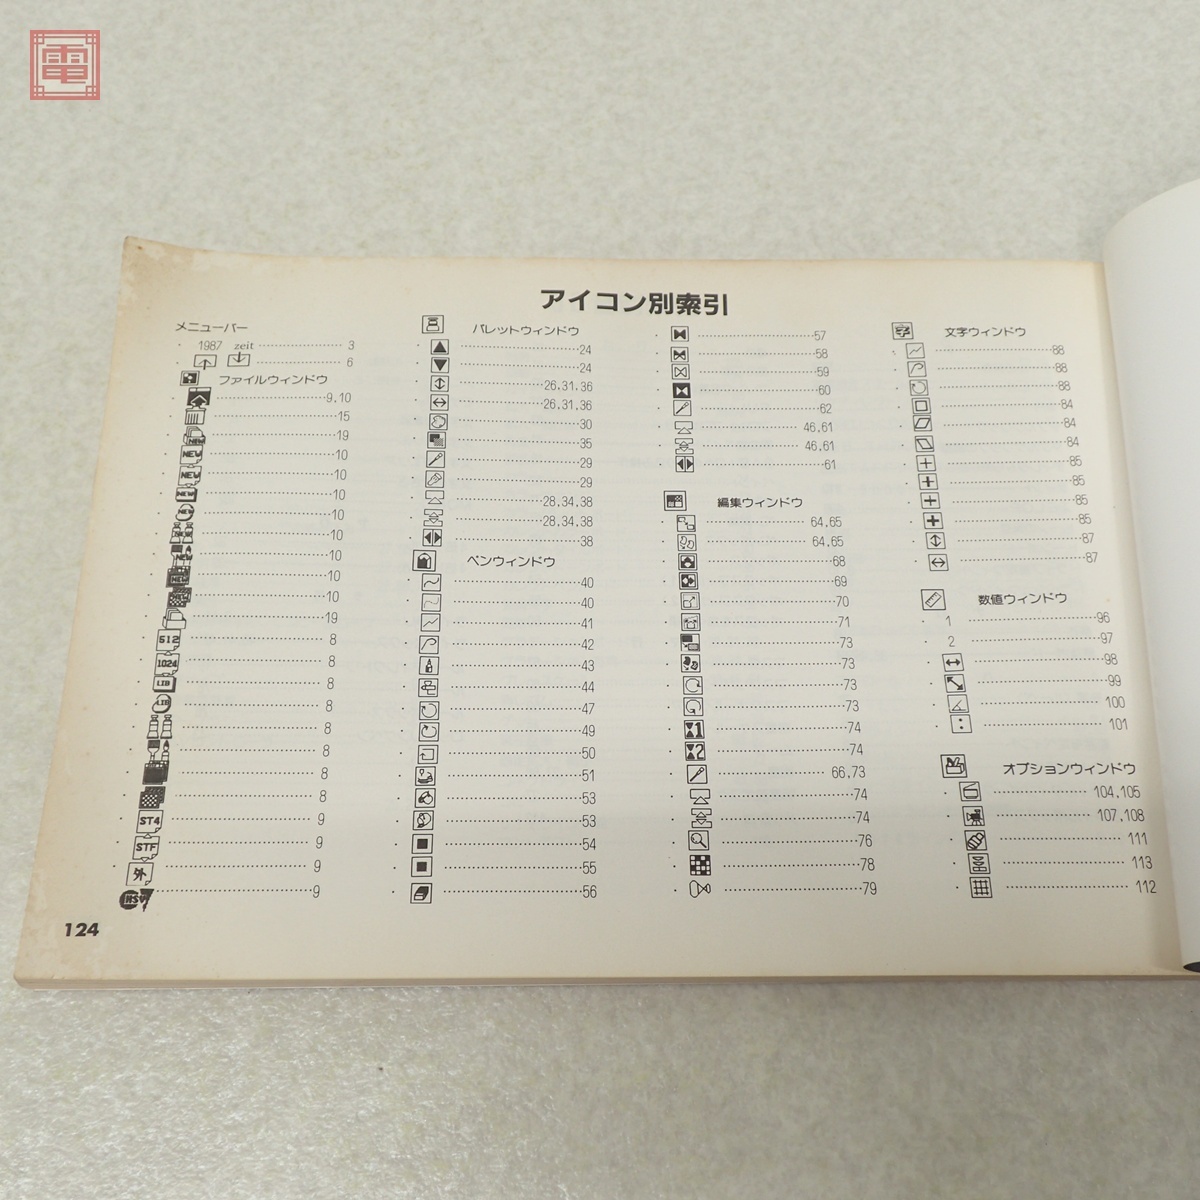 電
アイコン別索引
メニューバー
1987 zeit 3
6
ファイルウィンドウ
9.10
15
NEW 19
NEW 10
NEW 10
NEW 10
NEW 10
NEW 10
NEW 10
NEW 10
NEW 10
19
512 8
1024 8
LIB 8
LIB 8
8
8
8
8
ST4 9
STF 9
外 9
9
パレットウィンドウ
24
24
26.31.36
26.31.36
30
35
29
29
28.34.38
28.34.38
38
ペンウィンドウ
40
40
41
42
43
44
47
49
50
51
53
53
54
55
56
57
58
59
60
62
46.61
46.61
61
編集ウィンドウ
64.65
64.65
68
69
70
71
73
73
73
73
1 74
2 74
66.73
74
74
76
78
79
字 文字ウィンドウ
88
88
88
84
84
84
85
85
85
85
87
87
数値ウィンドウ
1 96
2 97
98
99
100
101
オプションウィンドウ
104.105
107.108
111
113
112
124